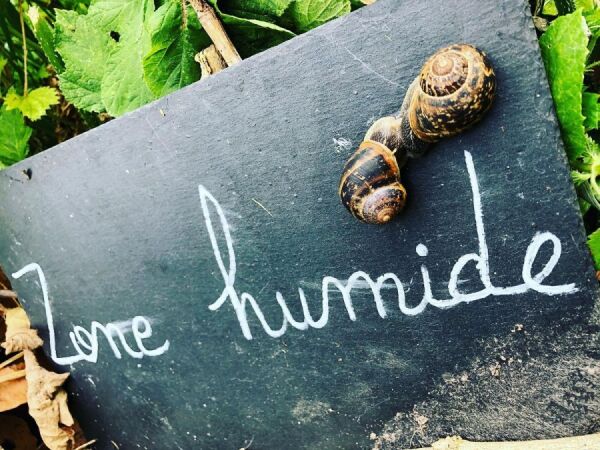 Zone humide